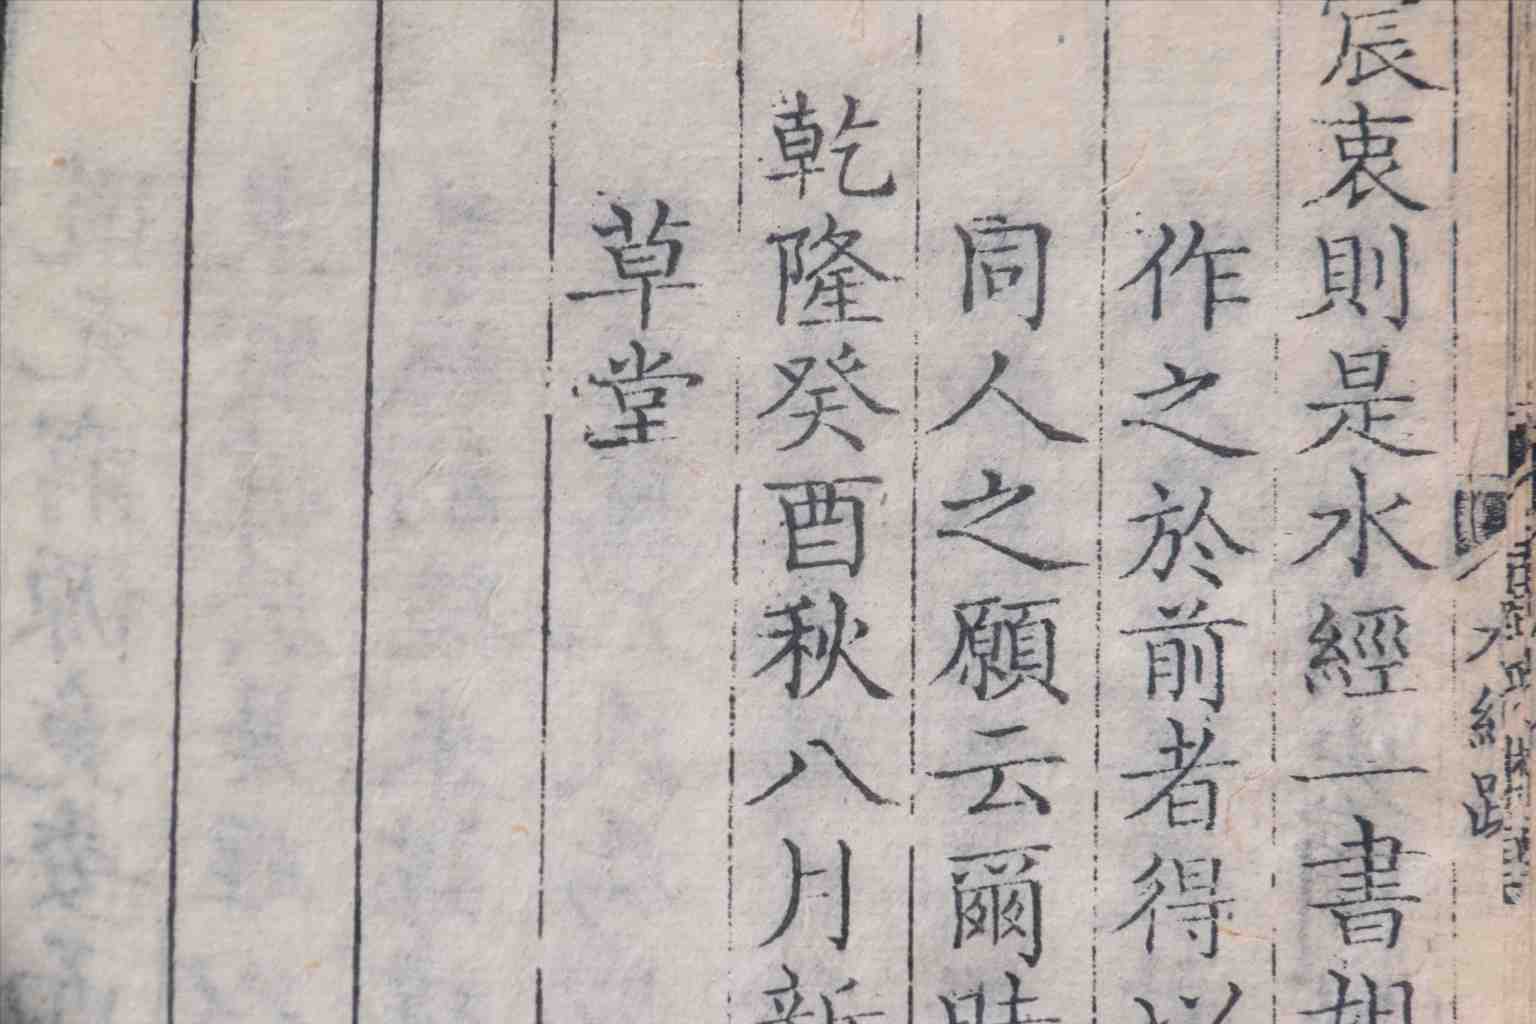 宸衷則是水經一書
作之於前者得以
同人之願云爾時
乾隆癸酉秋八月新
草堂